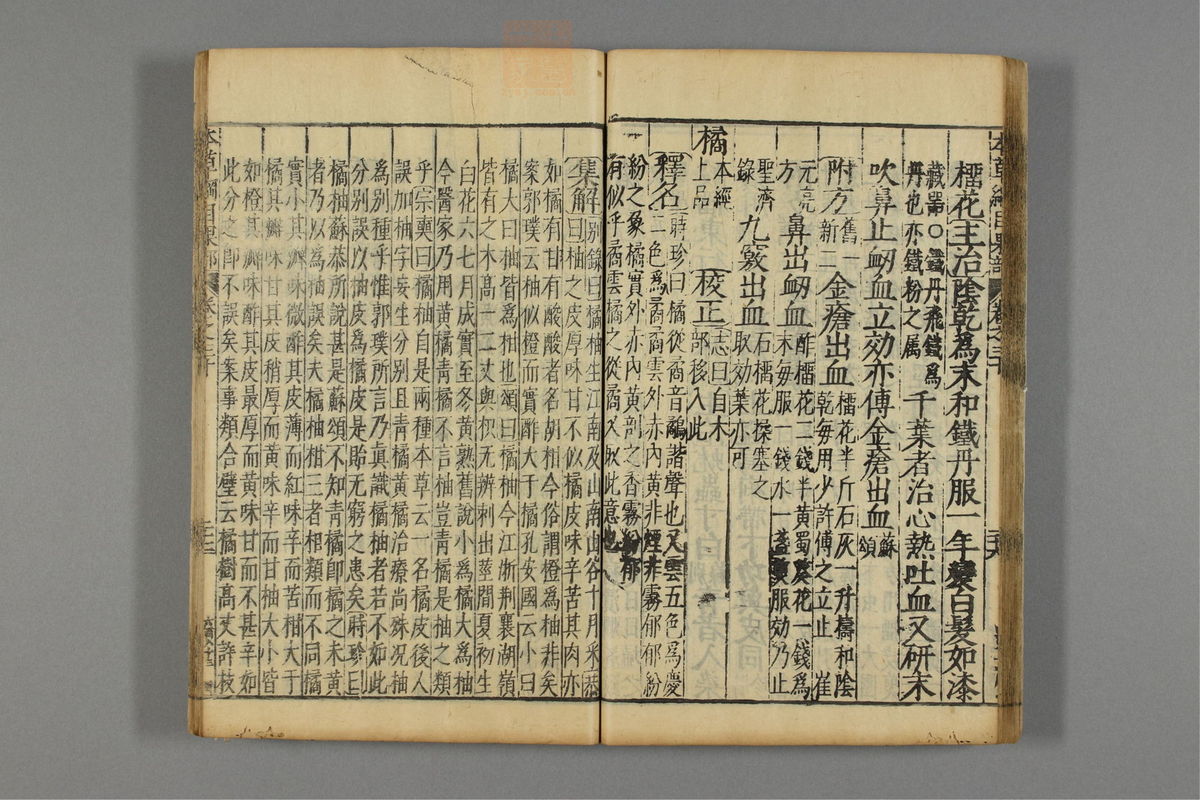 本草綱目果部 卷之三十
榴花主治陰乾爲末和鐵丹服一年變白髮如漆
藏器○鐵丹飛鐵爲
丹也亦鐵粉之屬
千葉者治心熱吐血又研末
吹鼻止衂血立効亦傅金瘡出血
蘇
頌
附方
舊一
新二
金瘡出血
榴花半斤石灰一升擣和陰
乾每用少許傅之立止 崔
元亮
方
鼻出衂血
酢榴花二錢半黃蜀葵花一錢爲
末每服一錢水一盞煎服効乃止
聖濟
錄
九竅出血
石榴花揉塞之
取効葉亦可
橘
本經
上品
校正
志曰自木
部移入此
釋名
時珍曰橘從矞音鷸諧聲也又雲五色爲慶
二色爲矞矞雲外赤內黃非煙非霧郁郁紛
紛之象橘實外赤內黃剖之香霧紛郁
有似乎矞雲橘之從矞又取此意也
集解
別錄曰橘柚生江南及山南山谷十月采恭
曰柚之皮厚味甘不似橘皮味辛苦其肉亦
如橘有甘有酸酸者名胡柑今俗謂橙爲柚非矣
案郭璞云柚似橙而實酢大于橘孔安國云小曰
橘大曰柚皆爲柑也頌曰橘柚今江浙荆襄湖嶺
皆有之木高一二丈與枳无辨刺出莖間夏初生
白花六七月成實至冬黃熟舊說小爲橘大爲柚
今醫家乃用黃橘青橘不言柚豈青橘是柚之類
乎宗奭曰橘柚自是兩種本草云一名橘皮後人
誤加柚字妄生分別且青橘黃橘治療尚殊况柚
爲別種乎惟郭璞所言乃真識橘柚者若不如此
分別誤以柚皮爲橘皮是貽无窮之患矣時珍曰
橘柚蘇恭所說甚是蘇頌不知青橘即橘之未黃
者乃以爲柚誤矣夫橘柚柑三者相類而不同橘
實小其瓣味微酢其皮薄而紅味辛而苦柑大于
橘其瓣味甘其皮稍厚而黃味辛而甘柚大小皆
如橙其瓣味酢其皮最厚而黃味甘而不甚辛如
此分之即不誤矣案事類合璧云橘樹高丈許枝
本草綱目果部 卷之三十